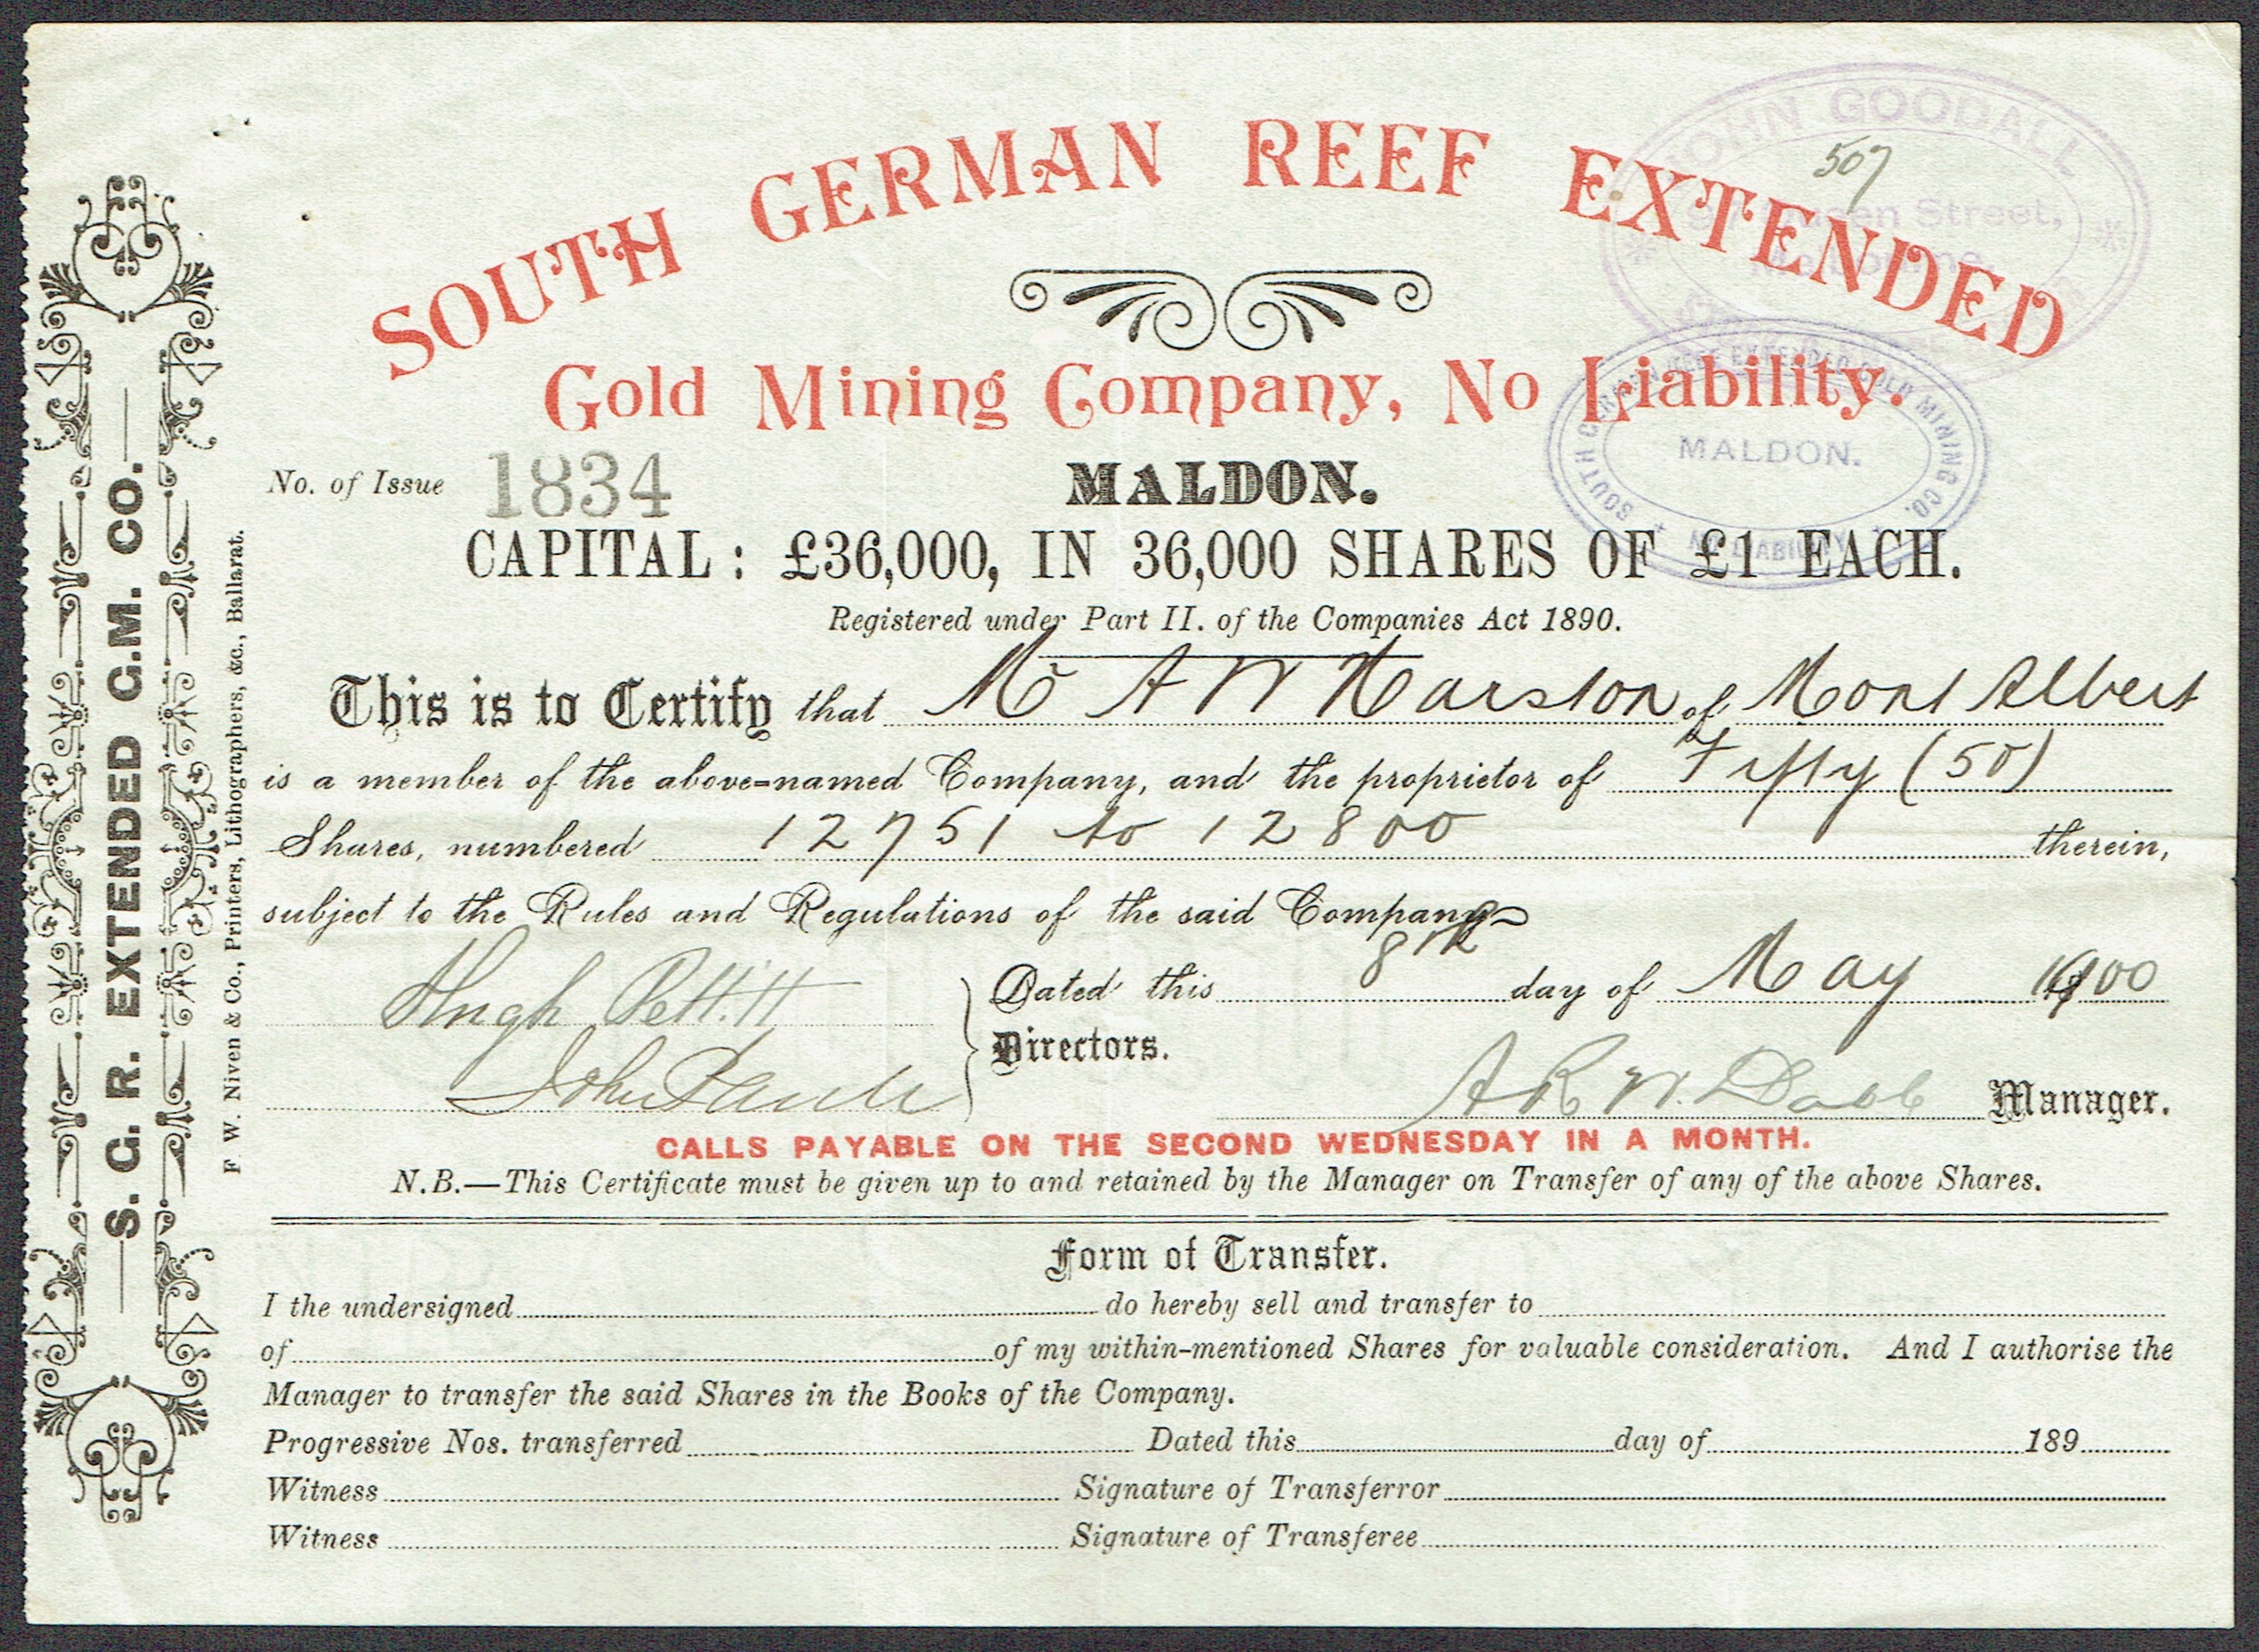 SOUTH GERMAN REEF EXTENDED
Gold Mining Company, No Liability.
JOHN GOODALL
507
Queen Street,
Melbourne
SOUTH GERMAN REEF EXTENDED GOLD MINING CO.
MALDON.
NO LIABILITY
No. of Issue 1834
MALDON.
CAPITAL: £36,000, IN 36,000 SHARES OF £1 EACH.
Registered under Part II. of the Companies Act 1890.
This is to Certify that Mr A W Harston of Mont Albert
is a member of the above-named Company, and the proprietor of Fifty (50)
Shares, numbered 12751 to 12800 therein,
subject to the Rules and Regulations of the said Company
Dated this 8th day of May 1900
Hugh Pettitt
John
Directors.
A R W. Dabb Manager.
CALLS PAYABLE ON THE SECOND WEDNESDAY IN A MONTH.
N.B.—This Certificate must be given up to and retained by the Manager on Transfer of any of the above Shares.
Form of Transfer.
I the undersigned do hereby sell and transfer to
of of my within-mentioned Shares for valuable consideration. And I authorise the
Manager to transfer the said Shares in the Books of the Company.
Progressive Nos. transferred Dated this day of 189
Witness Signature of Transferror
Witness Signature of Transferee
S. G. R. EXTENDED G.M. CO.
F. W. Niven & Co., Printers, Lithographers, &c., Ballarat.